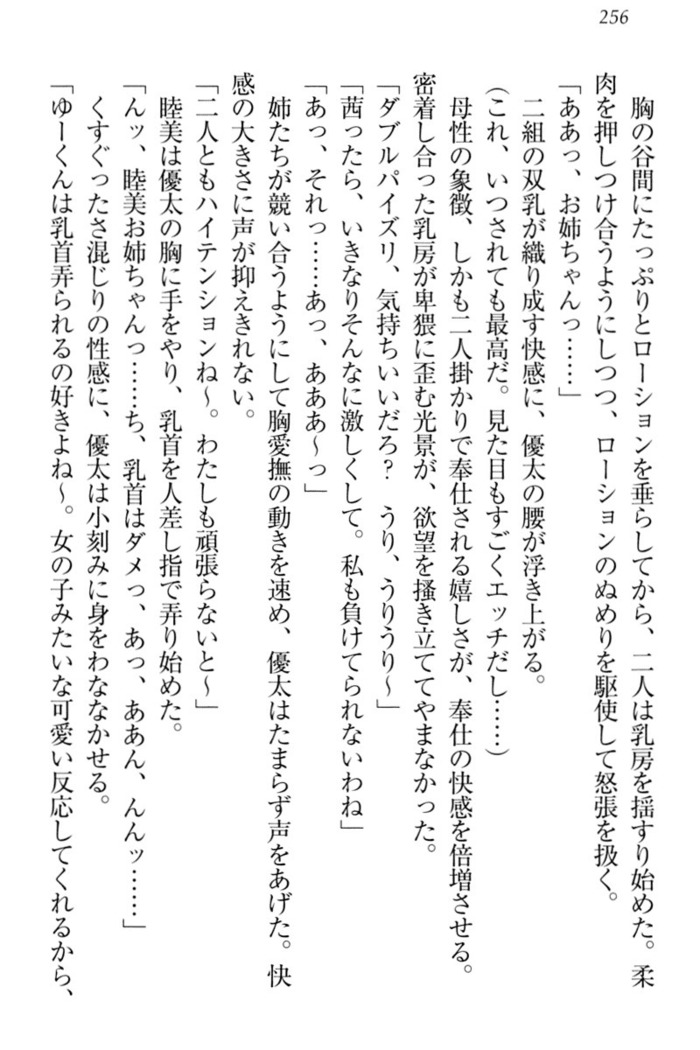 256
胸の谷間にたっぷりとローションを垂らしてから、二人は乳房を揺すり始めた。柔
肉を押しつけ合うようにしつつ、ローションのぬめりを駆使して怒張を扱く。
「ああっ、お姉ちゃんっ……」
二組の双乳が織り成す快感に、優太の腰が浮き上がる。
(これ、いつされても最高だ。見た目もすごくエッチだし……)
母性の象徴、しかも二人掛かりで奉仕される嬉しさが、奉仕の快感を倍増させる。
密着し合った乳房が卑猥に歪む光景が、欲望を掻き立ててやまなかった。
「ダブルパイズリ、気持ちいいだろ? うり、うりうり〜」
「茜ったら、いきなりそんなに激しくして。私も負けてられないわね」
「あっ、それっ……あっ、あああ〜っ」
姉たちが競い合うようにして胸愛撫の動きを速め、優太はたまらず声をあげた。快
感の大きさに声が抑えきれない。
「二人ともハイテンションね〜。わたしも頑張らないと〜」
睦美は優太の胸に手をやり、乳首を人差し指で弄り始めた。
「んッ、睦美お姉ちゃんっ……ち、乳首はダメっ、あっ、ああん、んんッ……」
くすぐったさ混じりの性感に、優太は小刻みに身をわななかせる。
「ゆーくんは乳首弄られるの好きよね〜。女の子みたいな可愛い反応してくれるから、